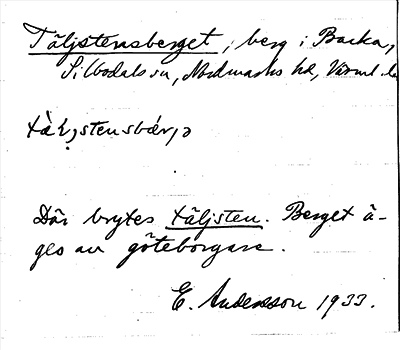 Täljstensberget, berg i Backa,
Silbodals sn, Nordmarks hd, Värml. l.
Där brytes täljsten. Berget ä-
ges av göteborgare.
E. Andersson 1933.